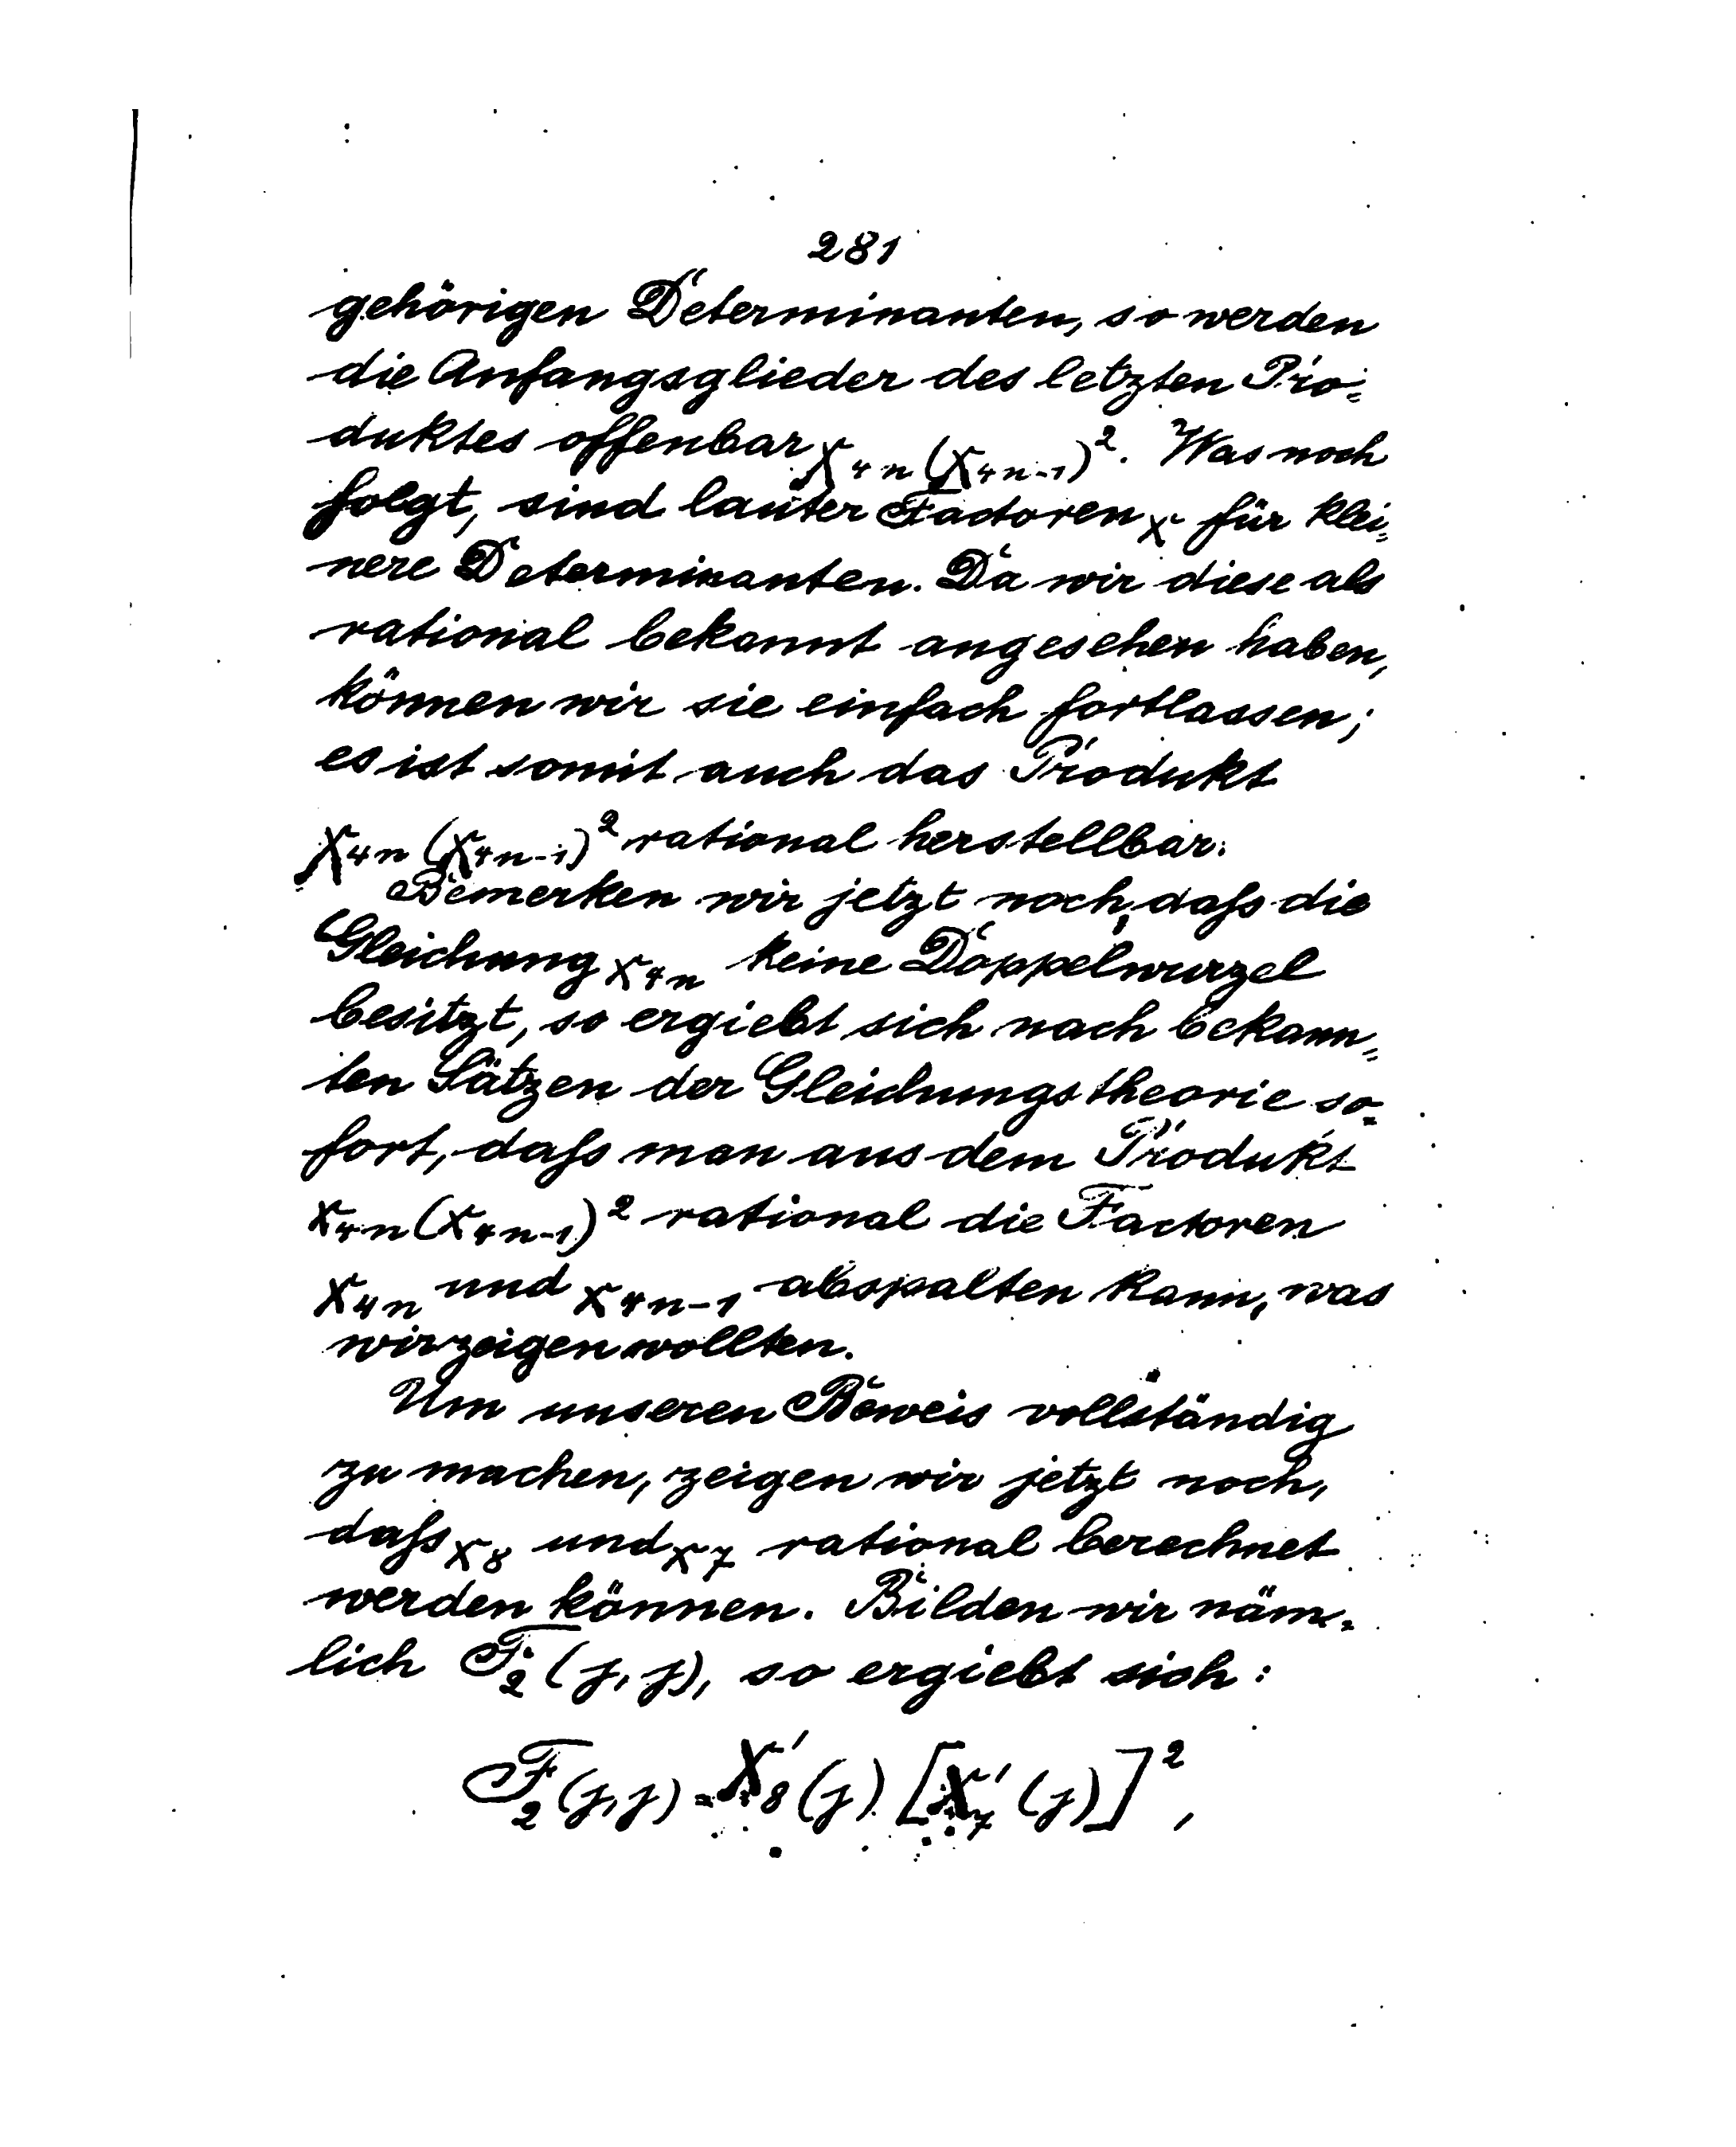 281
gehörigen Determinanten, so werden
die Anfangsglieder des letzten Pro-
duktes offenbar X₄ₙ(X₄ₙ₋₁)². Was noch
folgt, sind lauter Factoren X für klei-
nere Determinanten. Da wir diese als
rational bekannt angesehen haben,
können wir sie einfach fortlassen;
es ist somit auch das Produkt
X₄ₙ(X₄ₙ₋₁)² rational herstellbar.
Bemerken wir jetzt noch, daſs die
Gleichung X₄ₙ keine Doppelwurzel
besitzt, so ergiebt sich nach bekann-
ten Sätzen der Gleichungstheorie so-
fort, daſs man aus dem Produkt
X₄ₙ(X₄ₙ₋₁)² rational die Factoren
X₄ₙ und X₄ₙ₋₁ abspalten kann, was
wir zeigen wollten.
Um unseren Beweis vollständig
zu machen, zeigen wir jetzt noch,
daſs X₈ und X₇ rational berechnet
werden können. Bilden wir näm-
lich F₂(j,j), so ergiebt sich:
F₂(j,j) = X′₈(j) [X′₇(j)]²,